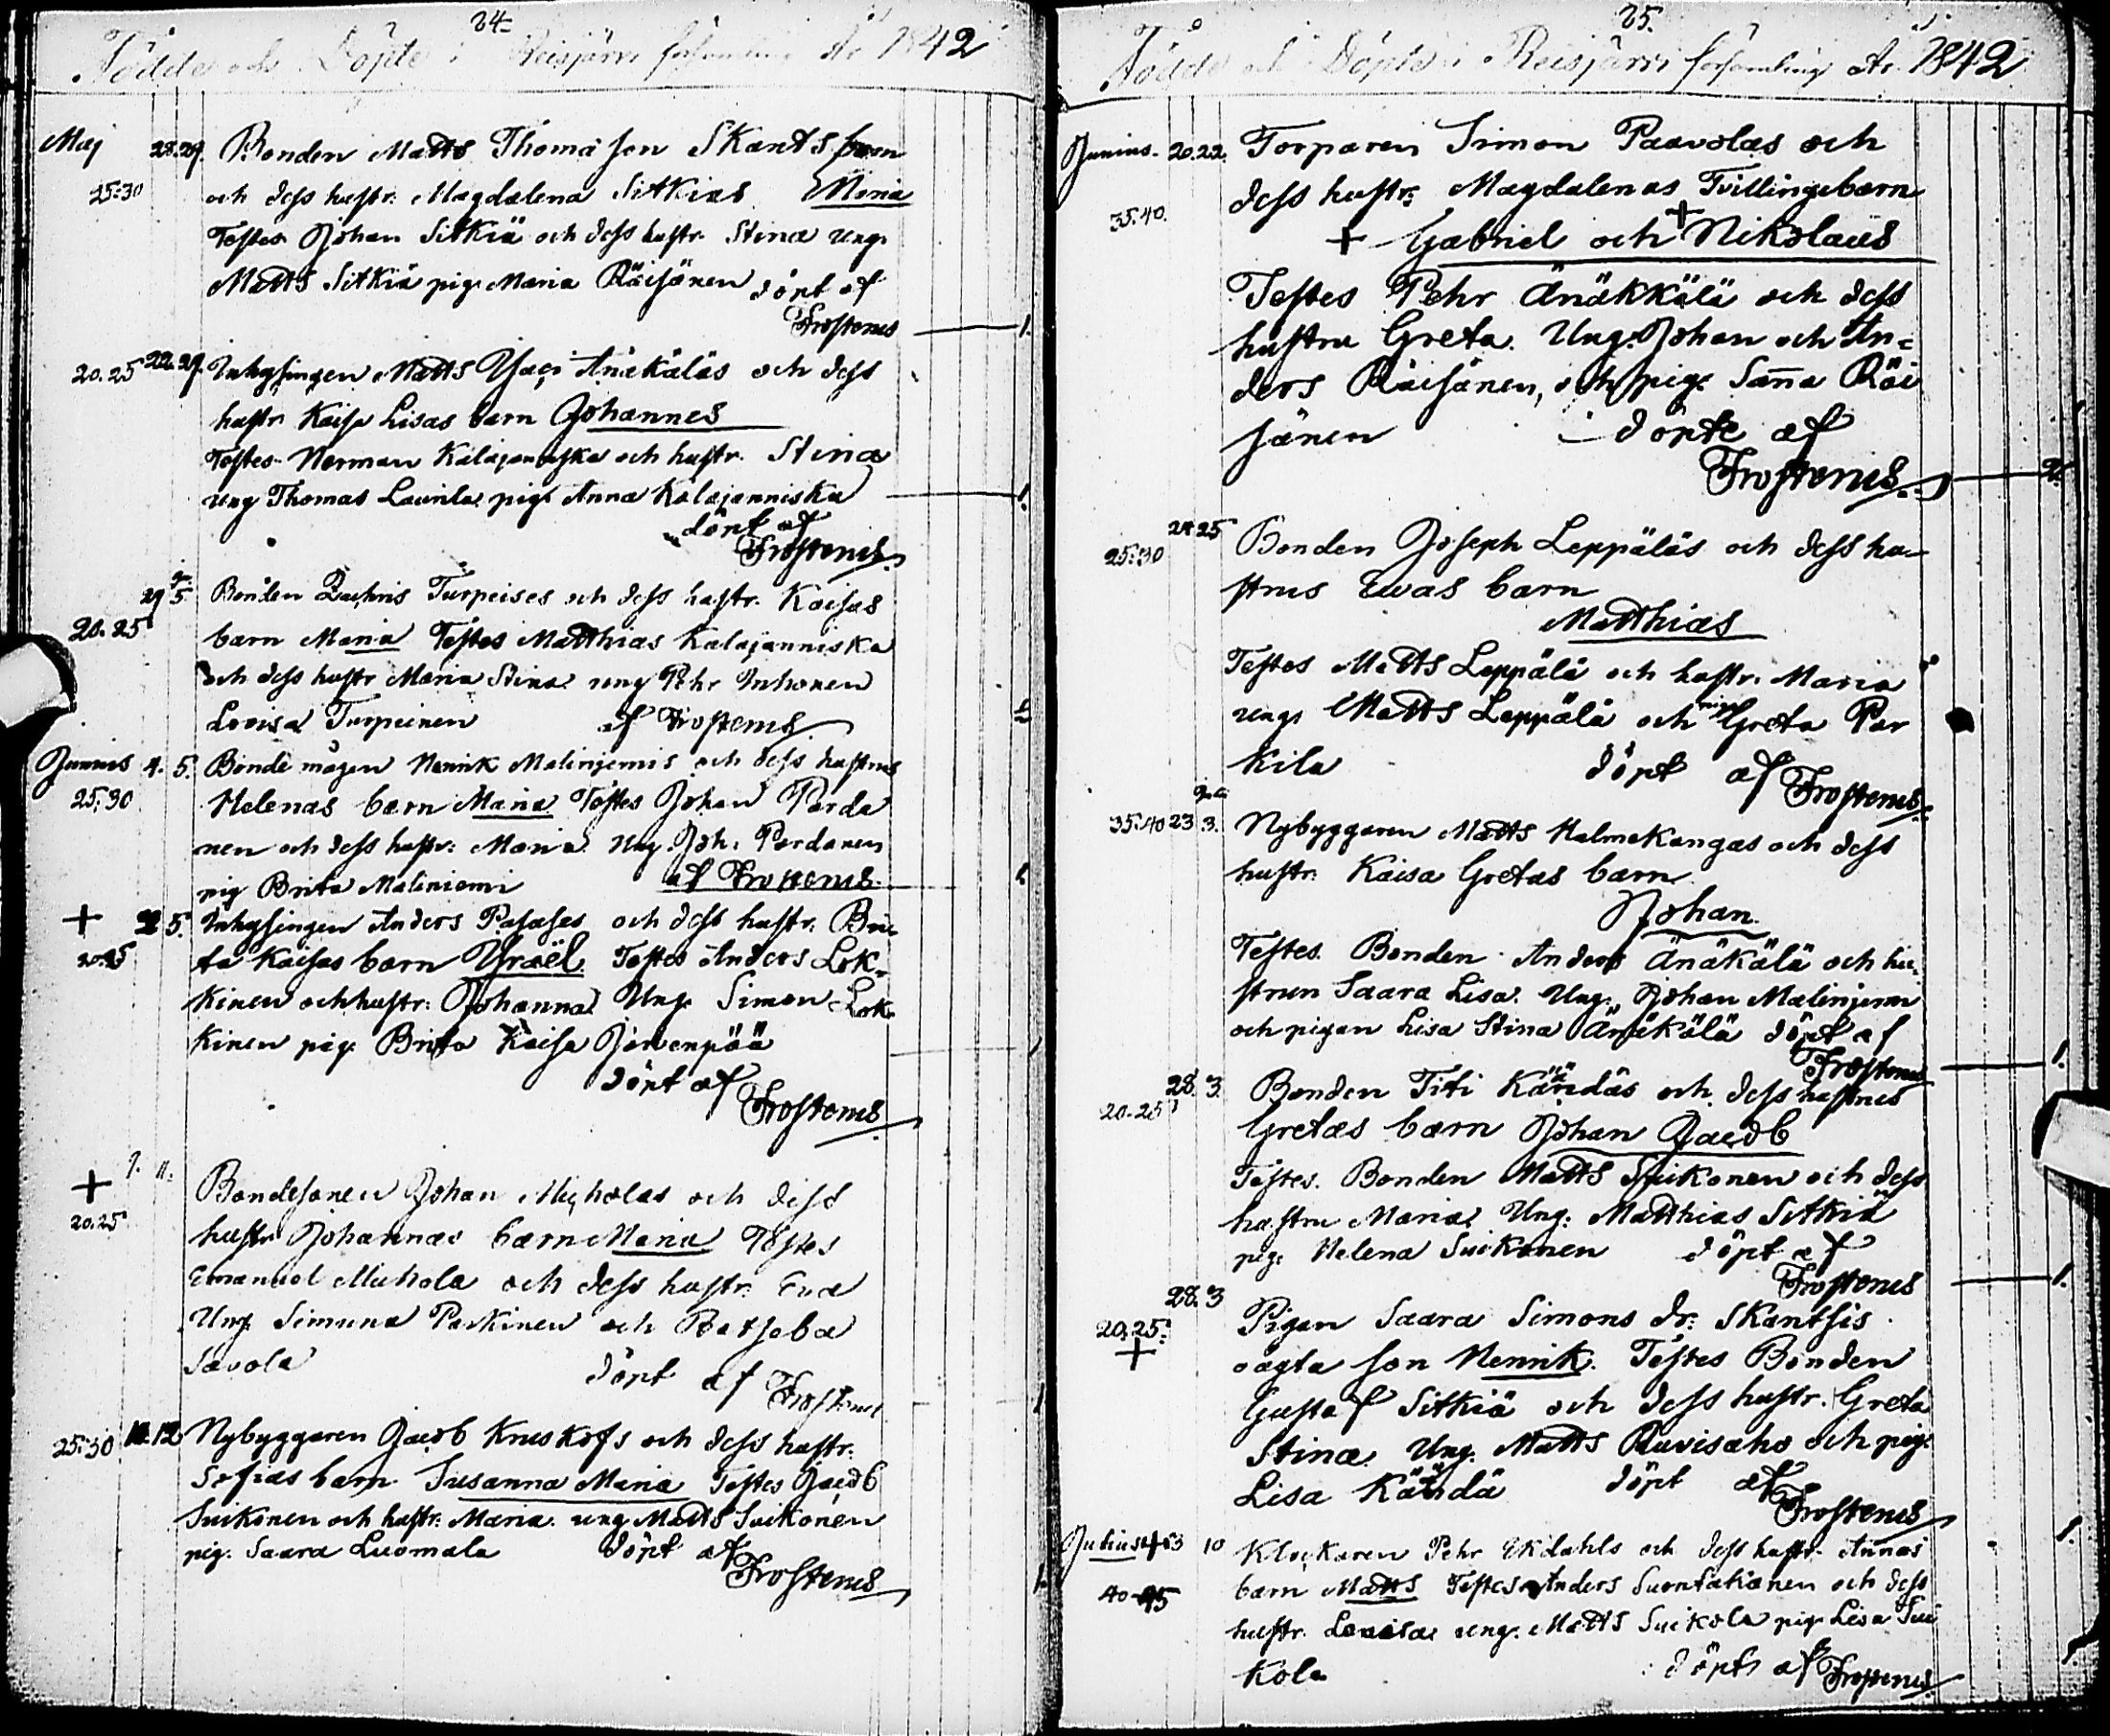 24
Födde och Döpte i Reisjärvi församling År 1842
Maj 28. 29. Bonden Matts Thomæson Skants barn
25-30 och dess hustr. Magdalena Sitkias Maria
Testes Johan Sitkiä och dess hustr. Stina ung.
Matts Sitkiä pig. Maria Räisänen döpt af
Frosterus 1.
20.25 22. 29. Inhysingen Matts Änäkäläs och dess
hustr. Kaisa Lisas barn Johannes
Testes Herman Kalajanniska och hustr. Stina
ung Thomas Laurila pig. Anna Kalajanniska 1.
döpt af
Frosterus
29 5. Bonden Zachris Turpeises och dess hustr. Kaisas
20.25 barn Maria Testes Matthias Kalajanniska
och dess hustr Maria Stina ung Pehr Inhonen
Lovisa Turpeinen af Frosterus 1.
Junius 4. 5. Bonde mågen Henrik Maliniemis och dess hustrus
25.30 Helenas barn Maria Testes Johan Parda
nen och dess hustr. Maria Ung. Joh. Pardanen
pig Brita Maliniemi af Frosterus 1.
+ 2 5. Inhysingen Anders Pasases och dess hustr. Bri
20.25 ta Kaisas barn Israël Testes Anders Lok-
kinen och hustr: Johanna Ung. Simon Lok-
kinen pig. Brita Kaisa Järvenpää
döpt af
Frosterus
+ 7. 11. Bondesonen Johan Muholas och dess
20.25 hustr Johannas barn Maria Testes
Emanuel Muhola och dess hustr. Eva
Ung. Simuna Parkinen och Batseba
Savola döpt af Frosterus
25.30 11. 12 Nybyggaren Jacob Kruskofs och dess hustr.
Sofias barn Susanna Maria Testes Jacob
Suikonen och hustr. Maria. ung Matts Suikonen
pig. Saara Luomala döpt af
Frosterus
25.
Födde och Döpte i Reisjärvi församling År 1842
Junius. 20.22. Torparen Simon Paavolas och
35.40. dess hustr. Magdalenas Tvillingebarn
+ Gabriel och + Nikolaus
Testes Pehr Änäkkälä och dess
hustru Greta. Ung. Johan och An-
ders Räisänen, och pig. Sanna Räi
sänen döpte af
Frosterus 2.
24 25 Bonden Joseph Leppäläs och dess hu-
25.30 strus Evas barn
Matthias
Testes Matts Leppälä och hustr. Maria
ung. Matts Leppälä och pig. Greta Par
kila döpt af Frosterus
35.40 23 3. Nybyggaren Matts Halmekangas och dess
hustr. Kaisa Gretas barn
Johan
Testes. Bonden Anders Änäkälä och hu-
strun Saara Lisa. Ung. Johan Maliniemi
och pigan Lisa Stina Änäkälä döpt af
Frosterus 1.
28. 3. Bonden Titi Kändäs och dess hustrus
20.25 Gretas barn Johan Jacob
Testes. Bonden Matts Suikonen och dess
hustru Maria. Ung. Matthias Sitkiä
pig. Helena Suikonen döpt af
Frosterus 1.
28. 3 Pigan Saara Simons dr. Skantsis
20.25. + oägta son Henrik. Testes Bonden
Gustaf Sitkiä och dess hustr. Greta
Stina Ung. Matts Ruuisaho och pig.
Lisa Kändä döpt af
Frosterus 1.
Julius 3 10 Klockaren Pehr Ekdahls och dess hustr. Annas
40-45 barn Matts Testes Anders Suontakanen och dess
hustr. Lovisa ung. Matts Suikola pig Lisa Sui
kola döpt af Frosterus